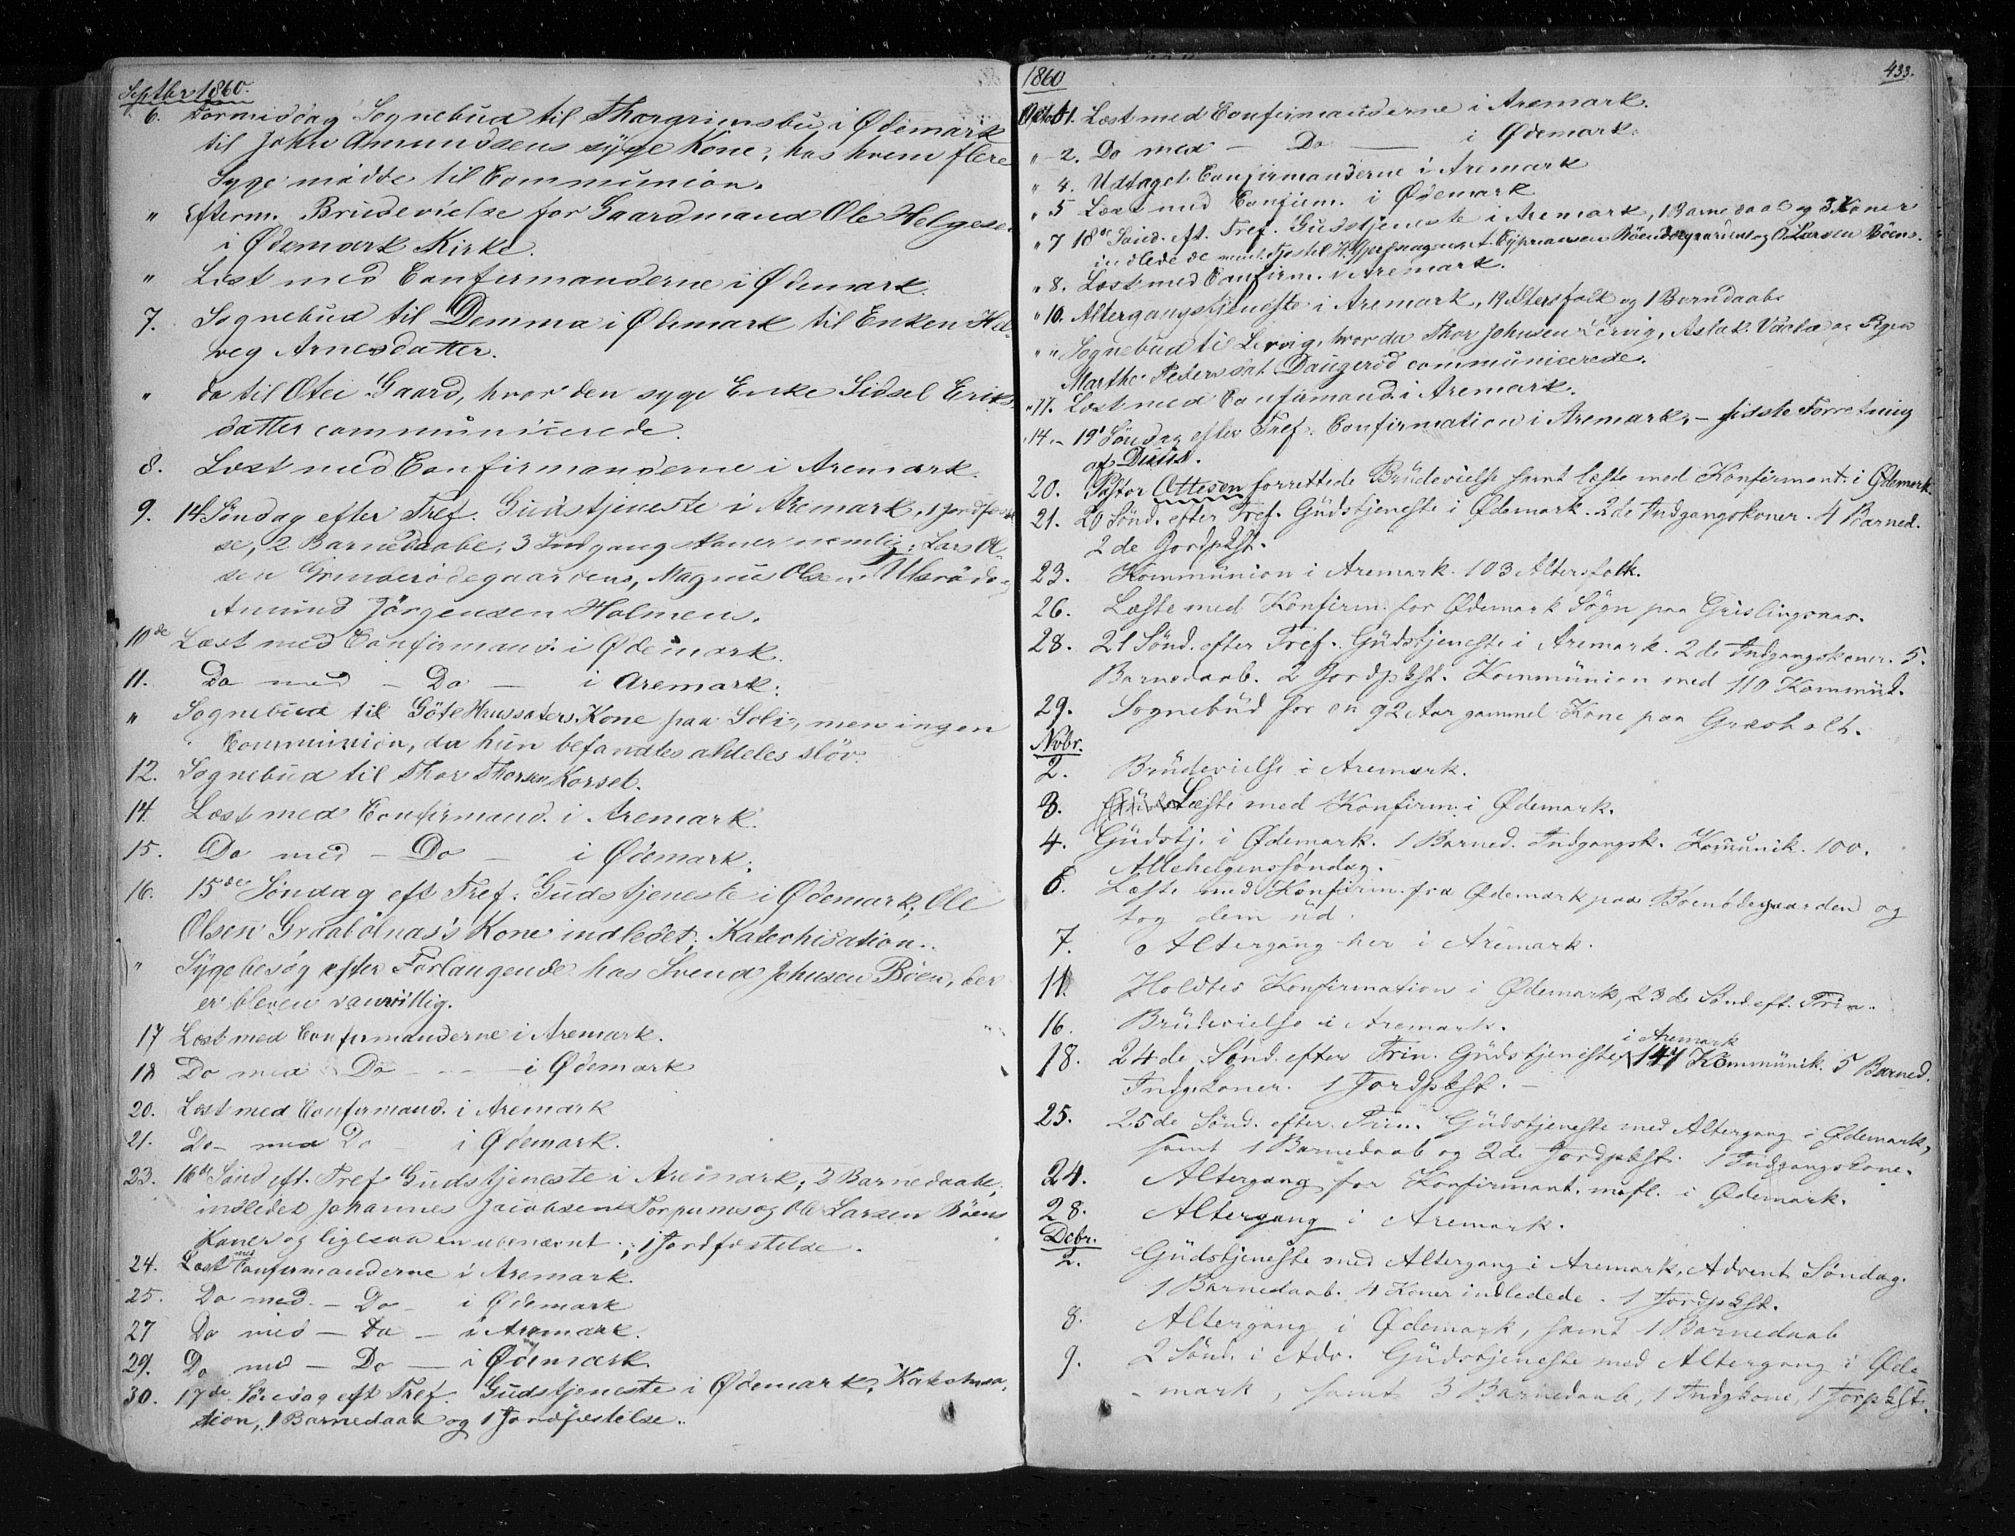 Septbr 1860.
6. Formiddag Sognebud til Thorgrimsbu i Ødemark
til John Amundsens syge Kone, hos hvem flere
Syge mødte til Communion.
" Efterm. Brudevielse for Gaardmand Ole Helgesen
i Ødemark Kirke.
" Læst med Confirmanderne i Ødemark.
7. Sognebud til Demma i Ødemark til Enken Hel-
veg Arnesdatter.
" do til Otei Gaard, hvor den syge Enke Sidsel Eriks
datter communicerede.
8. Læst med Confirmanderne i Aremark.
9. 14 Søndag efter Tref. Gudstjeneste i Aremark, 1 Jordfæstel
se, 2 Barnedaabe, 3 Indgangskoner nemlig: Lars Ol-
sen Grinderødegaardens, Magnus Olsen Ulsrød og
Amund Jørgensen Holmen.
10de Læst med Confirmand. i Ødemark.
11. Do med - Do - i Aremark.
" Sognebud til Göte Hussaters Kone paa Soli, men ingen
Communion, da hun befandtes aldeles sløv.
12. Sognebud til Thor Thorsen Korset.
14. Læst med Confirmand. i Aremark.
15. Do med - Do - i Ødemark.
16. 15de Søndag eft Tref. Gudstjeneste i Ødemark. Ole
Olsen Graabölnas's Kone indledet. Katechisation.
" Sygebesøg efter Forlangende hos Svend Johnsen Böen, der
er bleven vanvittig.
17 Læst med Confirmanderne i Aremark.
18 Do med Do - - - i Ødemark
20. Læst med Confirmand. i Aremark
21. Do- med Do i Ødemark.
23. 16de Sønd eft. Tref Gudstjeneste i Aremark, 2 Barnedaabe,
indledet Johannes Jacobsen Torpums og Ole Larsen Böens
Koner og ligesaa en ubenævnt, 1 Jordfæstelse.
24. Læst med Confirmanderne i Aremark.
25. Do med - Do - i Ødemark
27 Do med - Do - i Aremark.
29. Do med - Do - i Ødemark.
30. 17de Søndag eft Tref. Gudstjeneste i Ødemark, Katechisa-
tion, 1 Barnedaab og 1 Jordfæstelse.
1860
433.
Oktob 1. Læst med Confirmanderne i Aremark.
" 2. Do med - Do - i Ødemark.
" 4. Udtaget Confirmanderne i Aremark
" 5 Læst med Confirm. i Ødemark
" 7 18de Sønd. eft. Tref. Gudstjeneste i Aremark, 1 Barnedaab og 3 Koner
indlede de Böendegaardens og O. Larsen Böens.
" 8. Læst med Confirm. i Aremark.
" 10. Altergangstjeneste i Aremark, 19 Altersfolk og 1 Barndaab
" " Sognebud til Lervig, hvor da Thor Johnsen Lervig, Aslak og Pigen
Marthe Pedersdat Daugerød communicerede.
" 11. Læst med Confirmand. i Aremark.
" 14. 19' Søndag efter Tref. Confirmation i Aremark, - sidste Forretning
af Duus.
20. Pastor Ottesen forrettede Brudevielse samt læste med Konfirmant. i Ødemark.
21. 20 Sønd. efter Tref. Gudstjeneste i Ødemark. 2de Indgangskoner. 4 Barned.
2de Jordpkst.
23. Kommunion i Aremark. 103 Altersfolk.
26. Læste med Konfirm. for Ødemark Sogn paa Grislingsnas.
28. 21 Sønd. efter Tref. Gudstjeneste i Aremark. 2de Indgangskoner. 5.
Barnedaab. 2 Jordpkst. Kommunion med 110 Kommun.
29. Sognebud for en 92 Aar gammel Kone paa Græsholt.
Novbr.
2. Brudevielse i Aremark.
3. Læste med Konfirm. i Ødemark.
4. Gudstj. i Ødemark. 1 Barned. Indgangsk. Komunik. 100.
Allehelgenssøndag.
6. Læste med Konfirm. fra Ødemark paa Böenødegaarden og
tog dem ud.
7. Altergang her i Aremark.
11. Holdtes Konfirmation i Ødemark, 23de Sønd eft. Trin.
16. Brudevielse i Aremark.
18. 24de Sønd. efter Trin. Gudstjeneste i Aremark 147 Kommunik. 5 Barned.
Indg.koner. 1 Jordpkst. -
25. 25de Sønd. efter Trin. Gudstjeneste med Altergang i Ødemark,
samt 1 Barnedaab og 2de Jordpkst. 1 Indgangskone.
24. Altergang for Konfirmant. m.fl. i Ødemark.
28. Altergang i Aremark.
Decbr.
2. Gudstjeneste med Altergang i Aremark, Advent Søndag.
1 Barnedaab. 4 Koner indledede. 1 Jordpkst.
8. Altergang i Ødemark, samt 1 Barnedaab
9. 2 Sønd. i Adv. Gudstjeneste med Altergang i Øde
mark, samt 3 Barnedaab, 1 Indgkone, 1 Jorpkst.